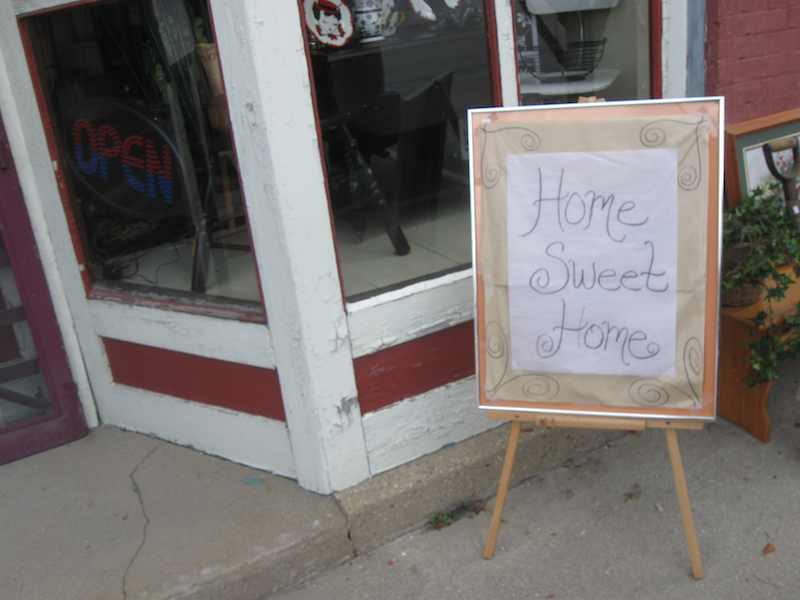 OPEN
Home
Sweet
Home